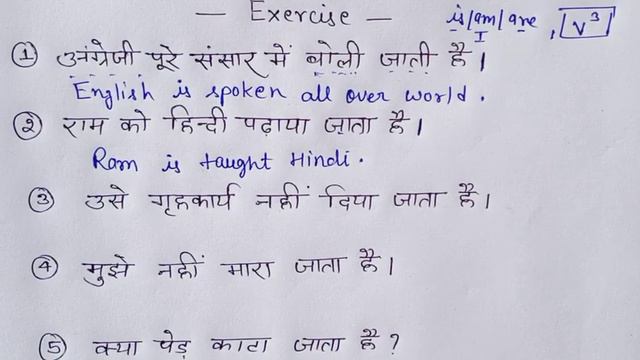 — Exercise — is/am/are, V³
I
① अंग्रेजी पूरे संसार में बोली जाती है।
English is spoken all over world.
② राम को हिन्दी पढ़ाया जाता है।
Ram is taught Hindi.
③ उसे गृहकार्य नहीं दिया जाता है।
④ मुझे नहीं मारा जाता है।
⑤ क्या पेड़ काटा जाता है?